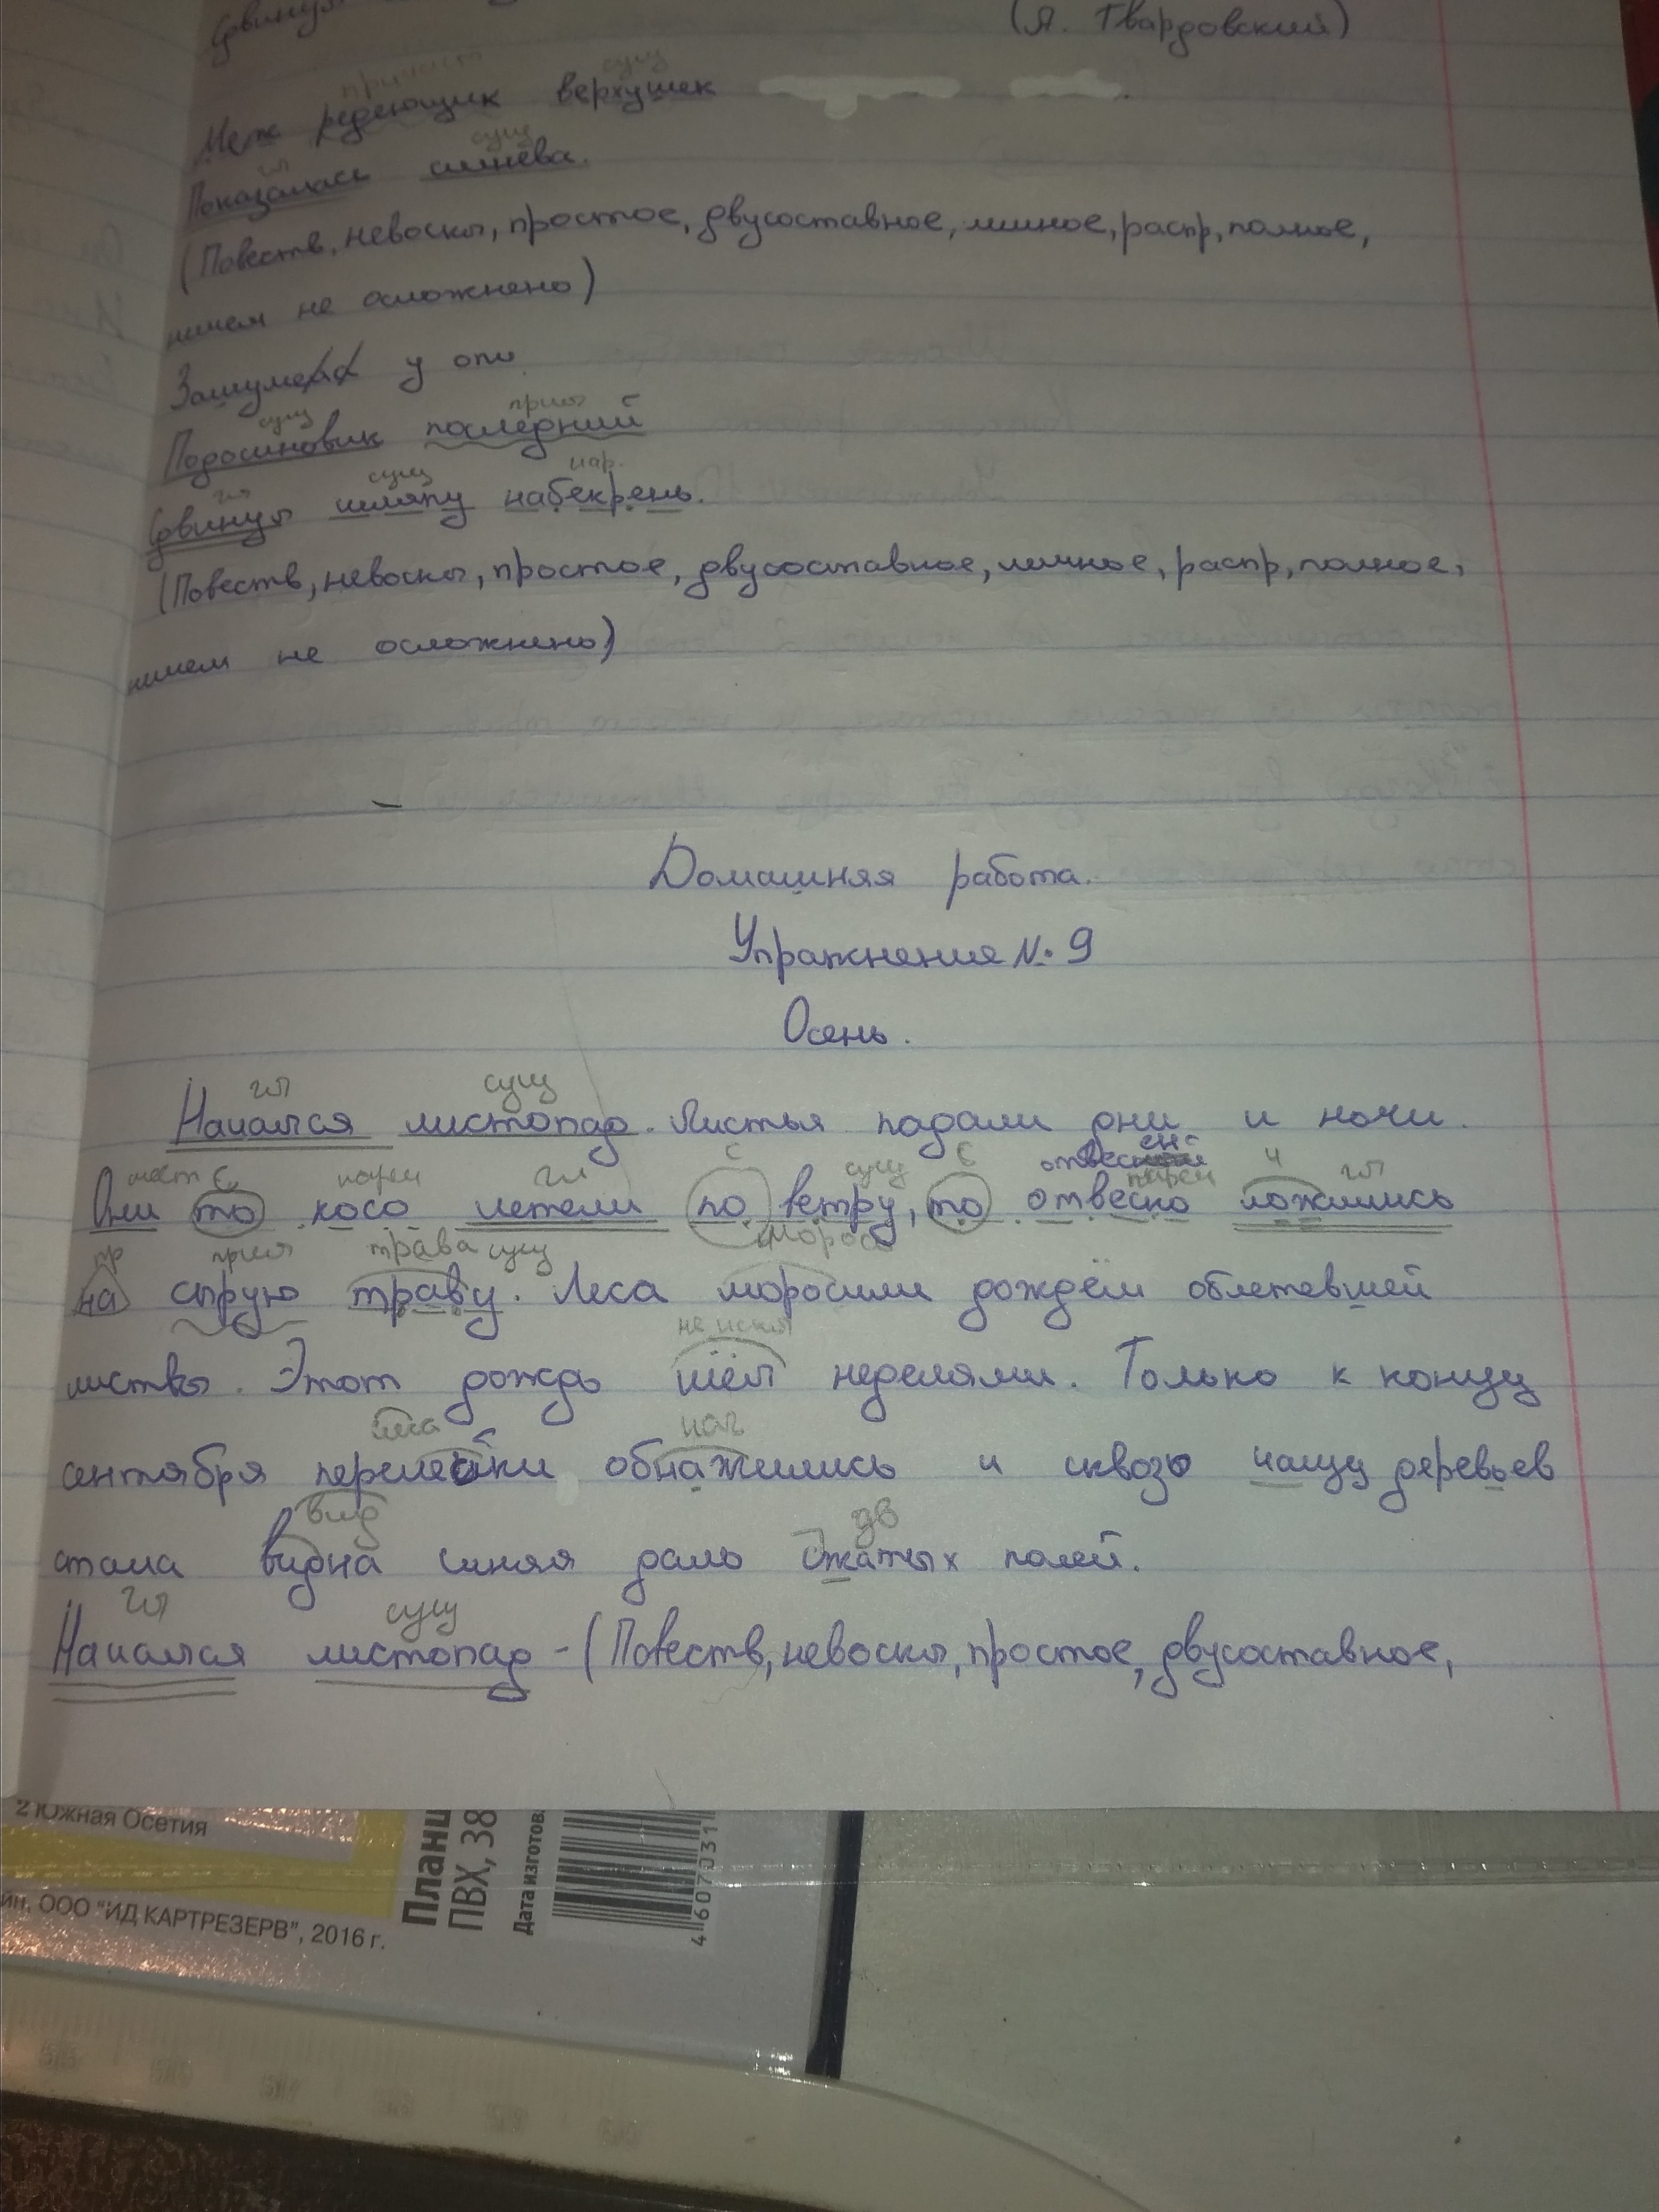 (А. Твардовский)
Сдвинув
причаст сущ
Меж редеющих верхушек
гл сущ
Показалась синева.
(Повеств, невоскл, простое, двусоставное, личное, распр, полное,
ничем не осложнено)
Зашумел у опу
сущ прил
Подосиновик последний
гл сущ нар.
Сдвинул шляпу набекрень.
(Повеств, невоскл, простое, двусоставное, личное, распр, полное,
ничем не осложнено)
Домашняя работа.
Упражнение № 9
Осень.
гл сущ
Начался листопад. Листья падали дни и ночи.
мест с нареч гл с сущ с нареч ч гл
Они то косо летели по ветру, то отвесно ложились
пр прил трава сущ
на сырую траву. Леса моросили дождём облетевшей
не искл
листвы. Этот дождь шёл неделями. Только к концу
леса наг
сентября перелески обнажились и сквозь чащу деревьев
вид
стала видна синяя даль сжатых полей.
гл сущ
Начался листопад - (Повеств, невоскл, простое, двусоставное,
2 Южная Осетия
ООО "ИД КАРТРЕЗЕРВ", 2016 г.
ПВХ, 38
Дата изготов.
4 607031